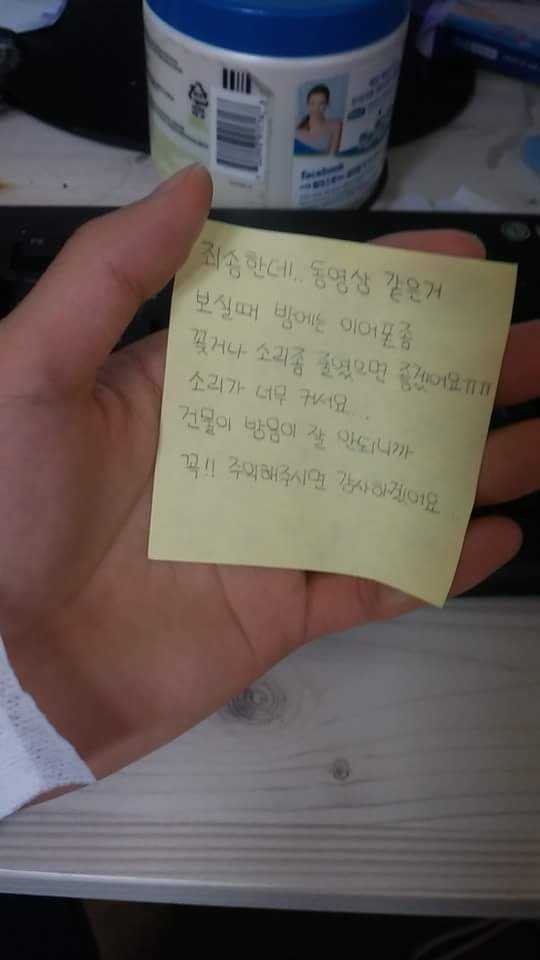 facebook
죄송한데.. 동영상 같은거
보실때 밤에는 이어폰좀
꽂거나 소리좀 줄였으면 좋겠어요ㅠㅠ
소리가 너무 커서요..
건물이 방음이 잘 안되니까
꼭!! 주의해주시면 감사하겠어요